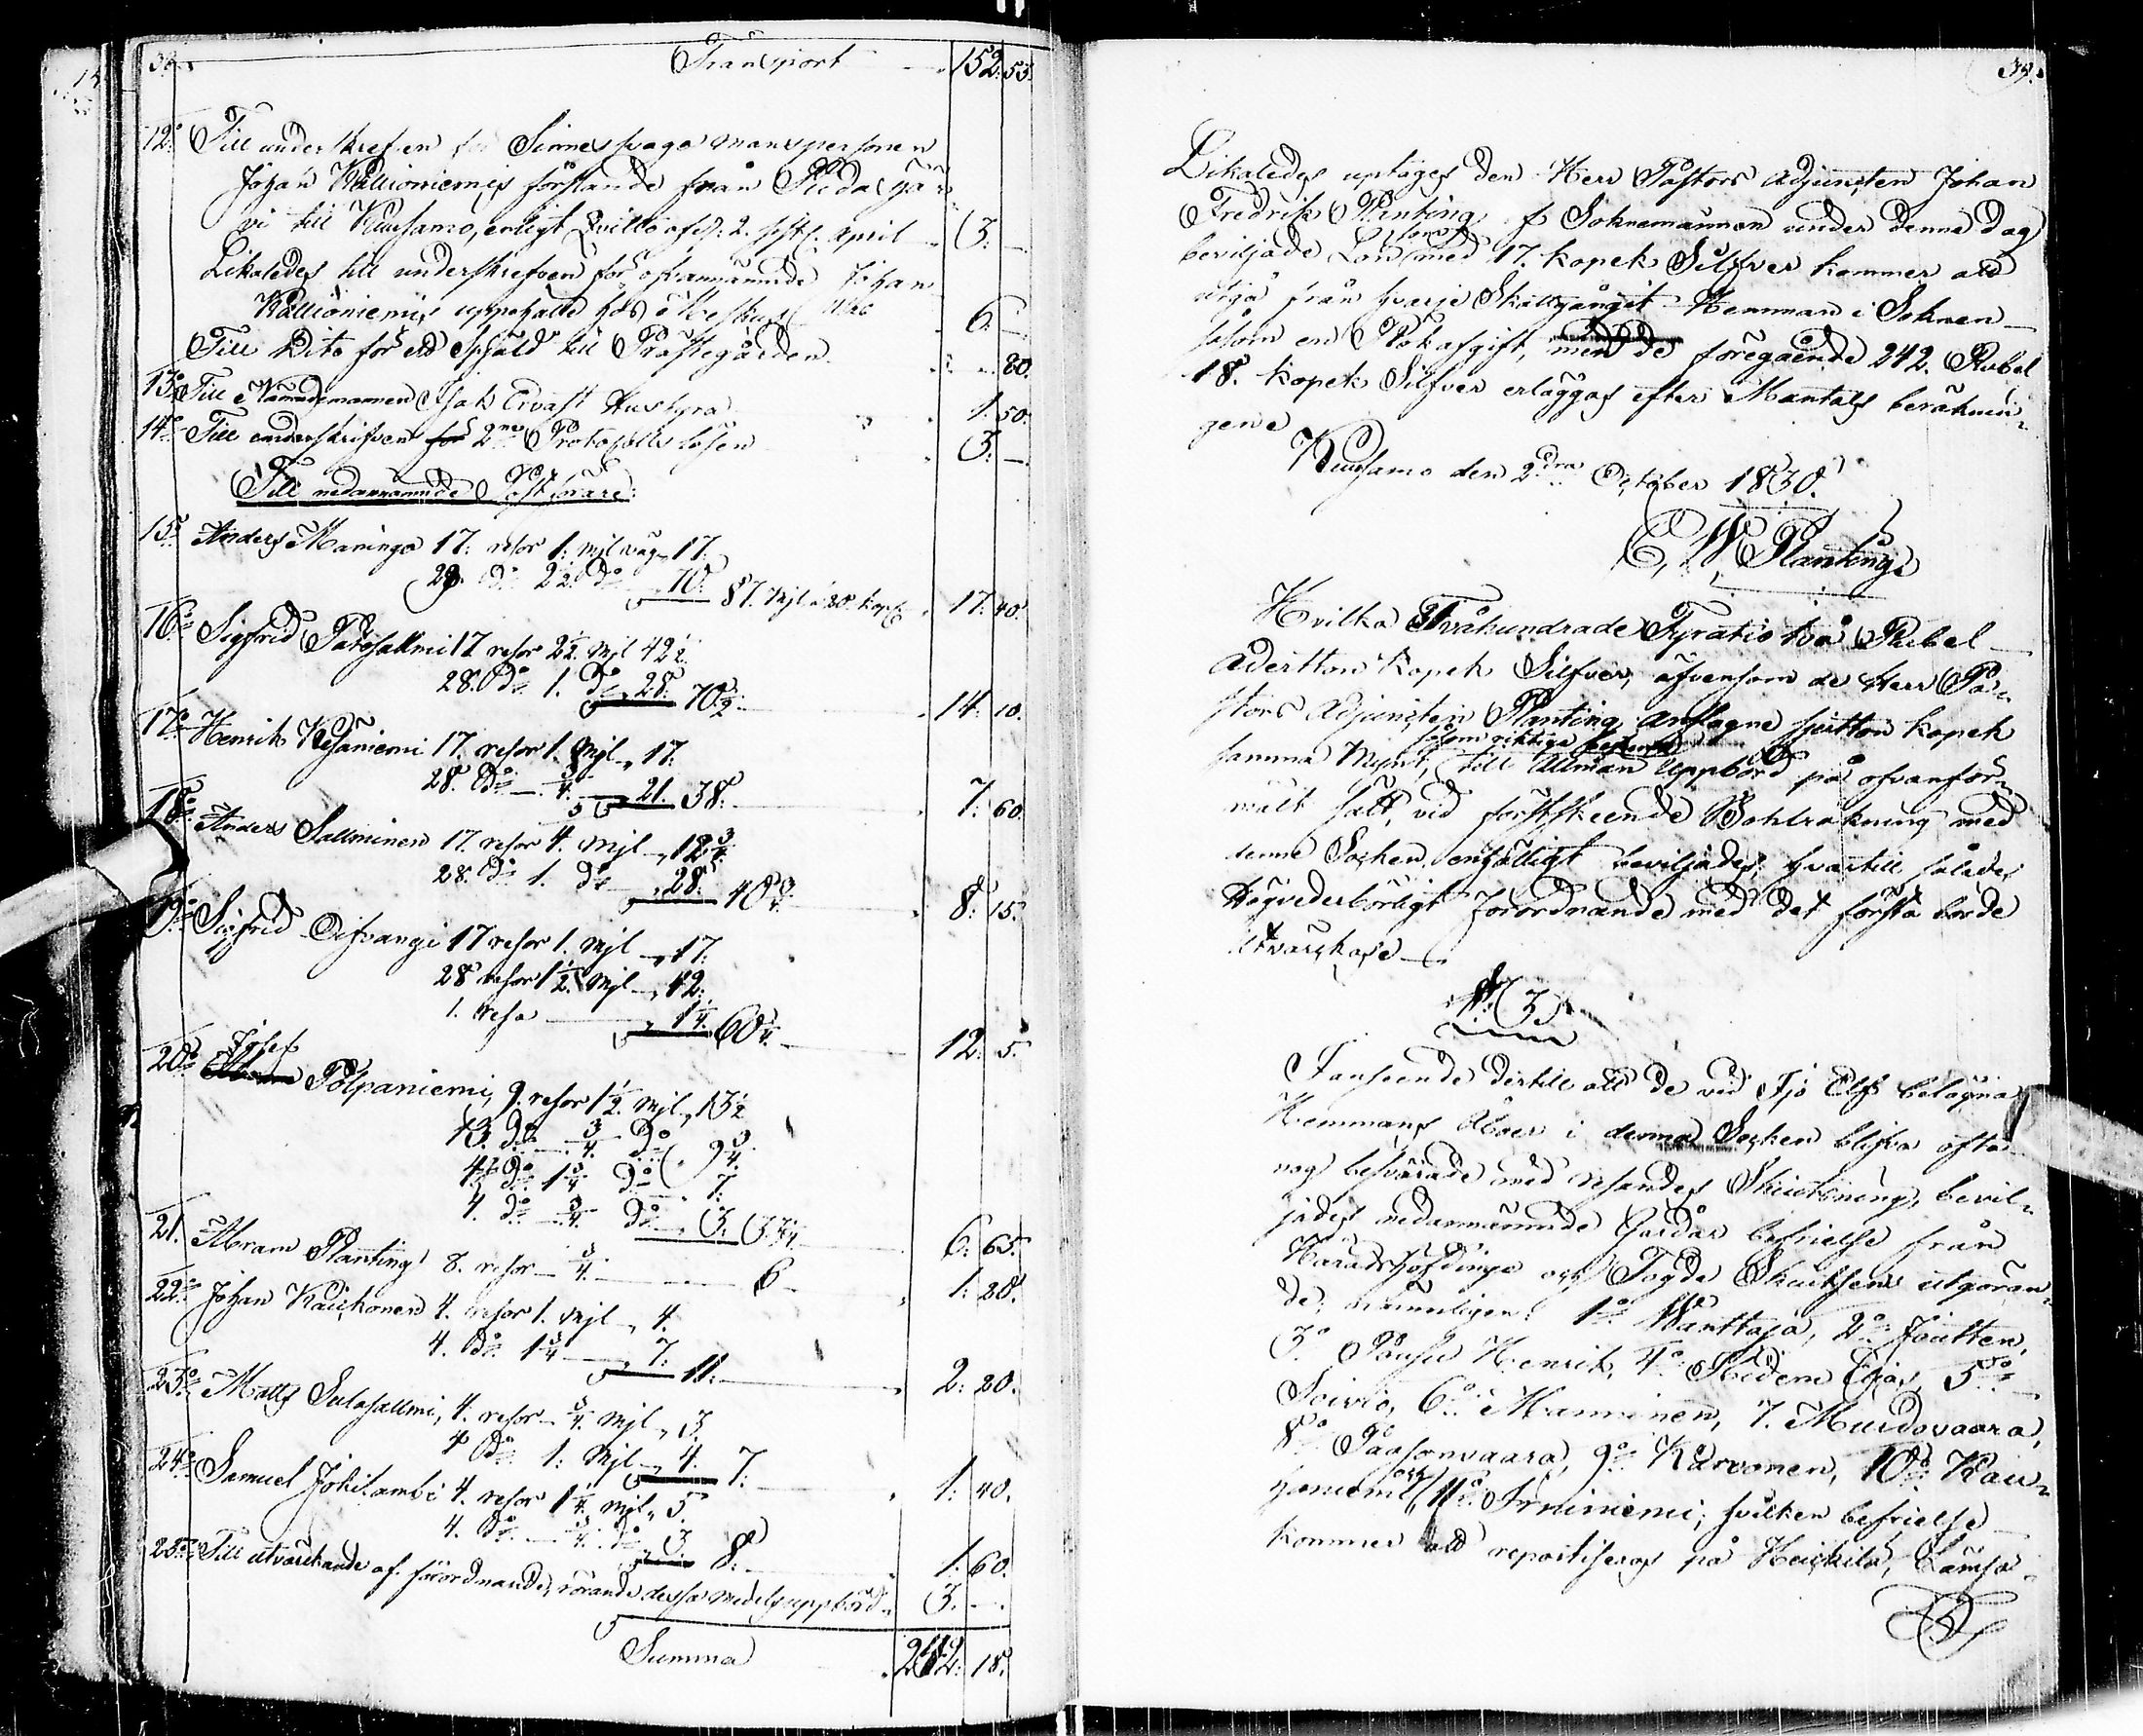 38.
Transport 152: 53.
12o Till underskrefven för Sinnessvaga mansperssonen
Johan Kallioniemis förslande från Pudasjär-
vi till Kuusamo, enligt Qvitto af d: 2. sistl. April 3: —
Likaledes till underskrefven för ofvannämnde Johan
Kallioniemis uppehälle 6: —
Till Dito för ett Spjäld till Prästegården 80.
13o Till Nämndemannen Isak Ervast Hushyra 1: 50.
14o Till underskrifven för 2ne Protokolls lösen 3: —
Till nedannämnde Postförare:
15o Anders Maninga 17: resor 1: mil väg 17.
28. do 2½ do 70: 87. Mil a 20. kop. 17: 40.
16o Sigfrid Patosallmi 17 resor 2½. Mil 42½
28. do 1. do 28: 70½: 14: 10.
17o Henrik Kesäniemi 17. resor 1. Mil 17:
28. do ¾. 21. 38: 7: 60.
18o Anders Sallminen 17. resor ¾. Mil 12¾
28. do 1. do 28: 40¾. 8: 15.
19o Sigfrid Oifvangi 17 resor 1. Mil 17:
28 resor 1½. Mil 42:
1. resa 1¼. 60¼. 12: 5.
Josef
20o Polpaniemi, 9. resor 1½. Mil 13½
13. do ¾. do 9¾.
4. do 1¾ do 7.
4. do ¾. do 3. 33¼. 6: 65.
21. Abram Planting 8. resor ¾. 6 1: 20.
22o Johan Kaickonen 4. resor 1. Mil 4.
4. do 1¾ 7: 11: 2: 20.
23o Matts Sulasallmi, 4. resor ¾. Mil 3.
4 do 1: Mil 4. 7: 1: 40.
24o Samuel Jokilambi 4. resor 1¼. Mil 5
4. do ¾. do 3. 8: 1: 60.
25o Till utvärckande af förordnande, rörande dessa medels uppbörd 3. —
Summa 242: 18.
39.
Likaledes uptoges den Herr Pastors Adjuncten Johan
Fredrik Planting af Soknemännen under denna dag
beviljade Lön med 17. kopek Silfver kommer att
utgå från hvarje Skattgångit Hemman i Soknen
såsom en Rökafgift, men de föregående 242. Rubel
18. kopek Silfver erläggas efter Mantals beräknin-
gene
Kuusamo den 2dra October 1830.
E, W, Planting
Hvilka Tvåhundrade Fyratio två Rubel
Adertton kopek Silfver, äfvensom de Herr Pa-
stors Adjuncten Planting anslagne sjutton kopek
såsom riktiga
samma Mynt, till Allmän Uppbörd på ofvanför-
mält sätt, vid förstskeende Bohlräkning med
denne Socken, enhälligt beviljades, hvartill således
Högvederbörligt Förordnande med det första borde
utvärckas.
§: 3.
I anseende dertill att de vid Ijo Elf belägna
Hemmans Åboer i denna Socken blifva ofta
nog besvärade med resandes Skiutsning, bevil-
jades nedannämnde Gårdar befrielse från
Häradshöfdinge och Fogde Skiutsens utgöran-
de; nemnligen: 1o Wanttaja, 2o Joutten,
3o Pousu Henrik, 4o 5o
Soivio, 6o Manninen, 7. Murdovaara,
8o Paasonvaara, 9o Karvonen, 10o Kau-
och
honiemi, 11o Irniniemi; hvilken befrielse
kommer att repartiseras på Heickilä, Lämsä